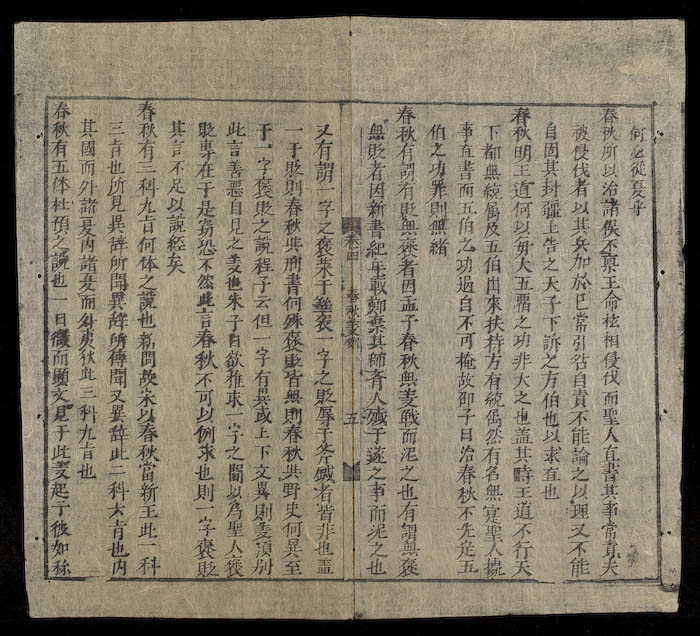 何必從夏乎
春秋所以治諸侯不禀王命柆相侵伐而聖人直書其事常責夫
被侵伐者以其兵加於己常引咎自責不能論之以理又不能
自固其封疆上告之天子下訴之方伯也以求直也
春秋明王道何以毎大五霸之功非大之也盖其時王道不行天
下都無統属及五伯出來扶持方有統属然有名無寔聖人據
事直書而五伯之功過自不可掩故卲子曰治春秋不先定五
伯之功罪則無緒
春秋有謂有貶無褒者因孟子春秋無義戰而泥之也有謂無褒
無貶者因新書紀年載鄭棄其師齊人殱于遂之事而泥之也
卷四 春秋義例 五
又有謂一字之褒荣于華衮一字之貶辱于斧鉞者皆非也盖
一于貶則春秋共刑書何殊褒貶皆無則春秋共野史何異至
于一字褒貶之說程子云但一字有異或上下文異則義湏別
此言善惡自見之義也朱子曰欲推求一字之間以為聖人褒
貶專在于是窃恐不然此言春秋不可以例求也則一字褒貶
其言不足以說經矣
春秋有三科九旨何体之說也新周故宋以春秋當新王此一科
三旨也所見異辞所聞異辞所傳聞又異辞此二科六旨也内
其國而外諸夏内諸夏而外夷狄此三科九旨也
春秋有五体杜預之說也一曰微而顕文見于此義起于彼如称